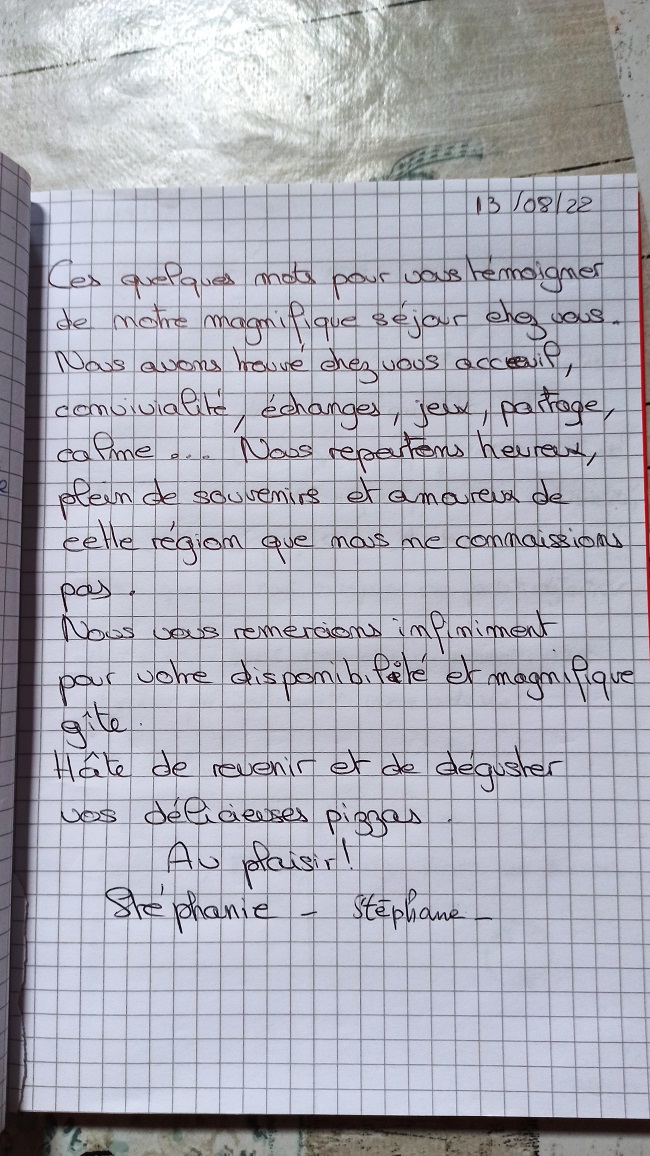 13/08/22
Ces quelques mots pour vous témoigner
de notre magnifique séjour chez vous.
Nous avons trouvé chez vous accueil,
convivialité, échanges, jeux, partage,
calme ... Nous repartons heureux,
plein de souvenirs et amoureux de
cette région que nous ne connaissions
pas.
Nous vous remercions infiniment
pour votre disponibilité et magnifique
gîte.
Hâte de revenir et de déguster
vos délicieuses pizzas.
Au plaisir!
Stéphanie - Stéphane -